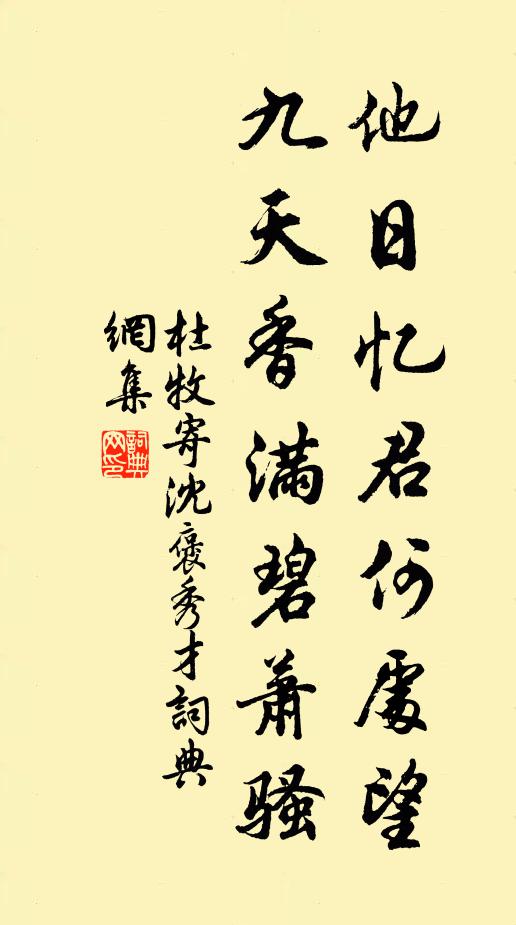 他日忆君何處望
九天香满碧萧骚
杜牧寄沈褒秀才詞典
網集
詞典
网印